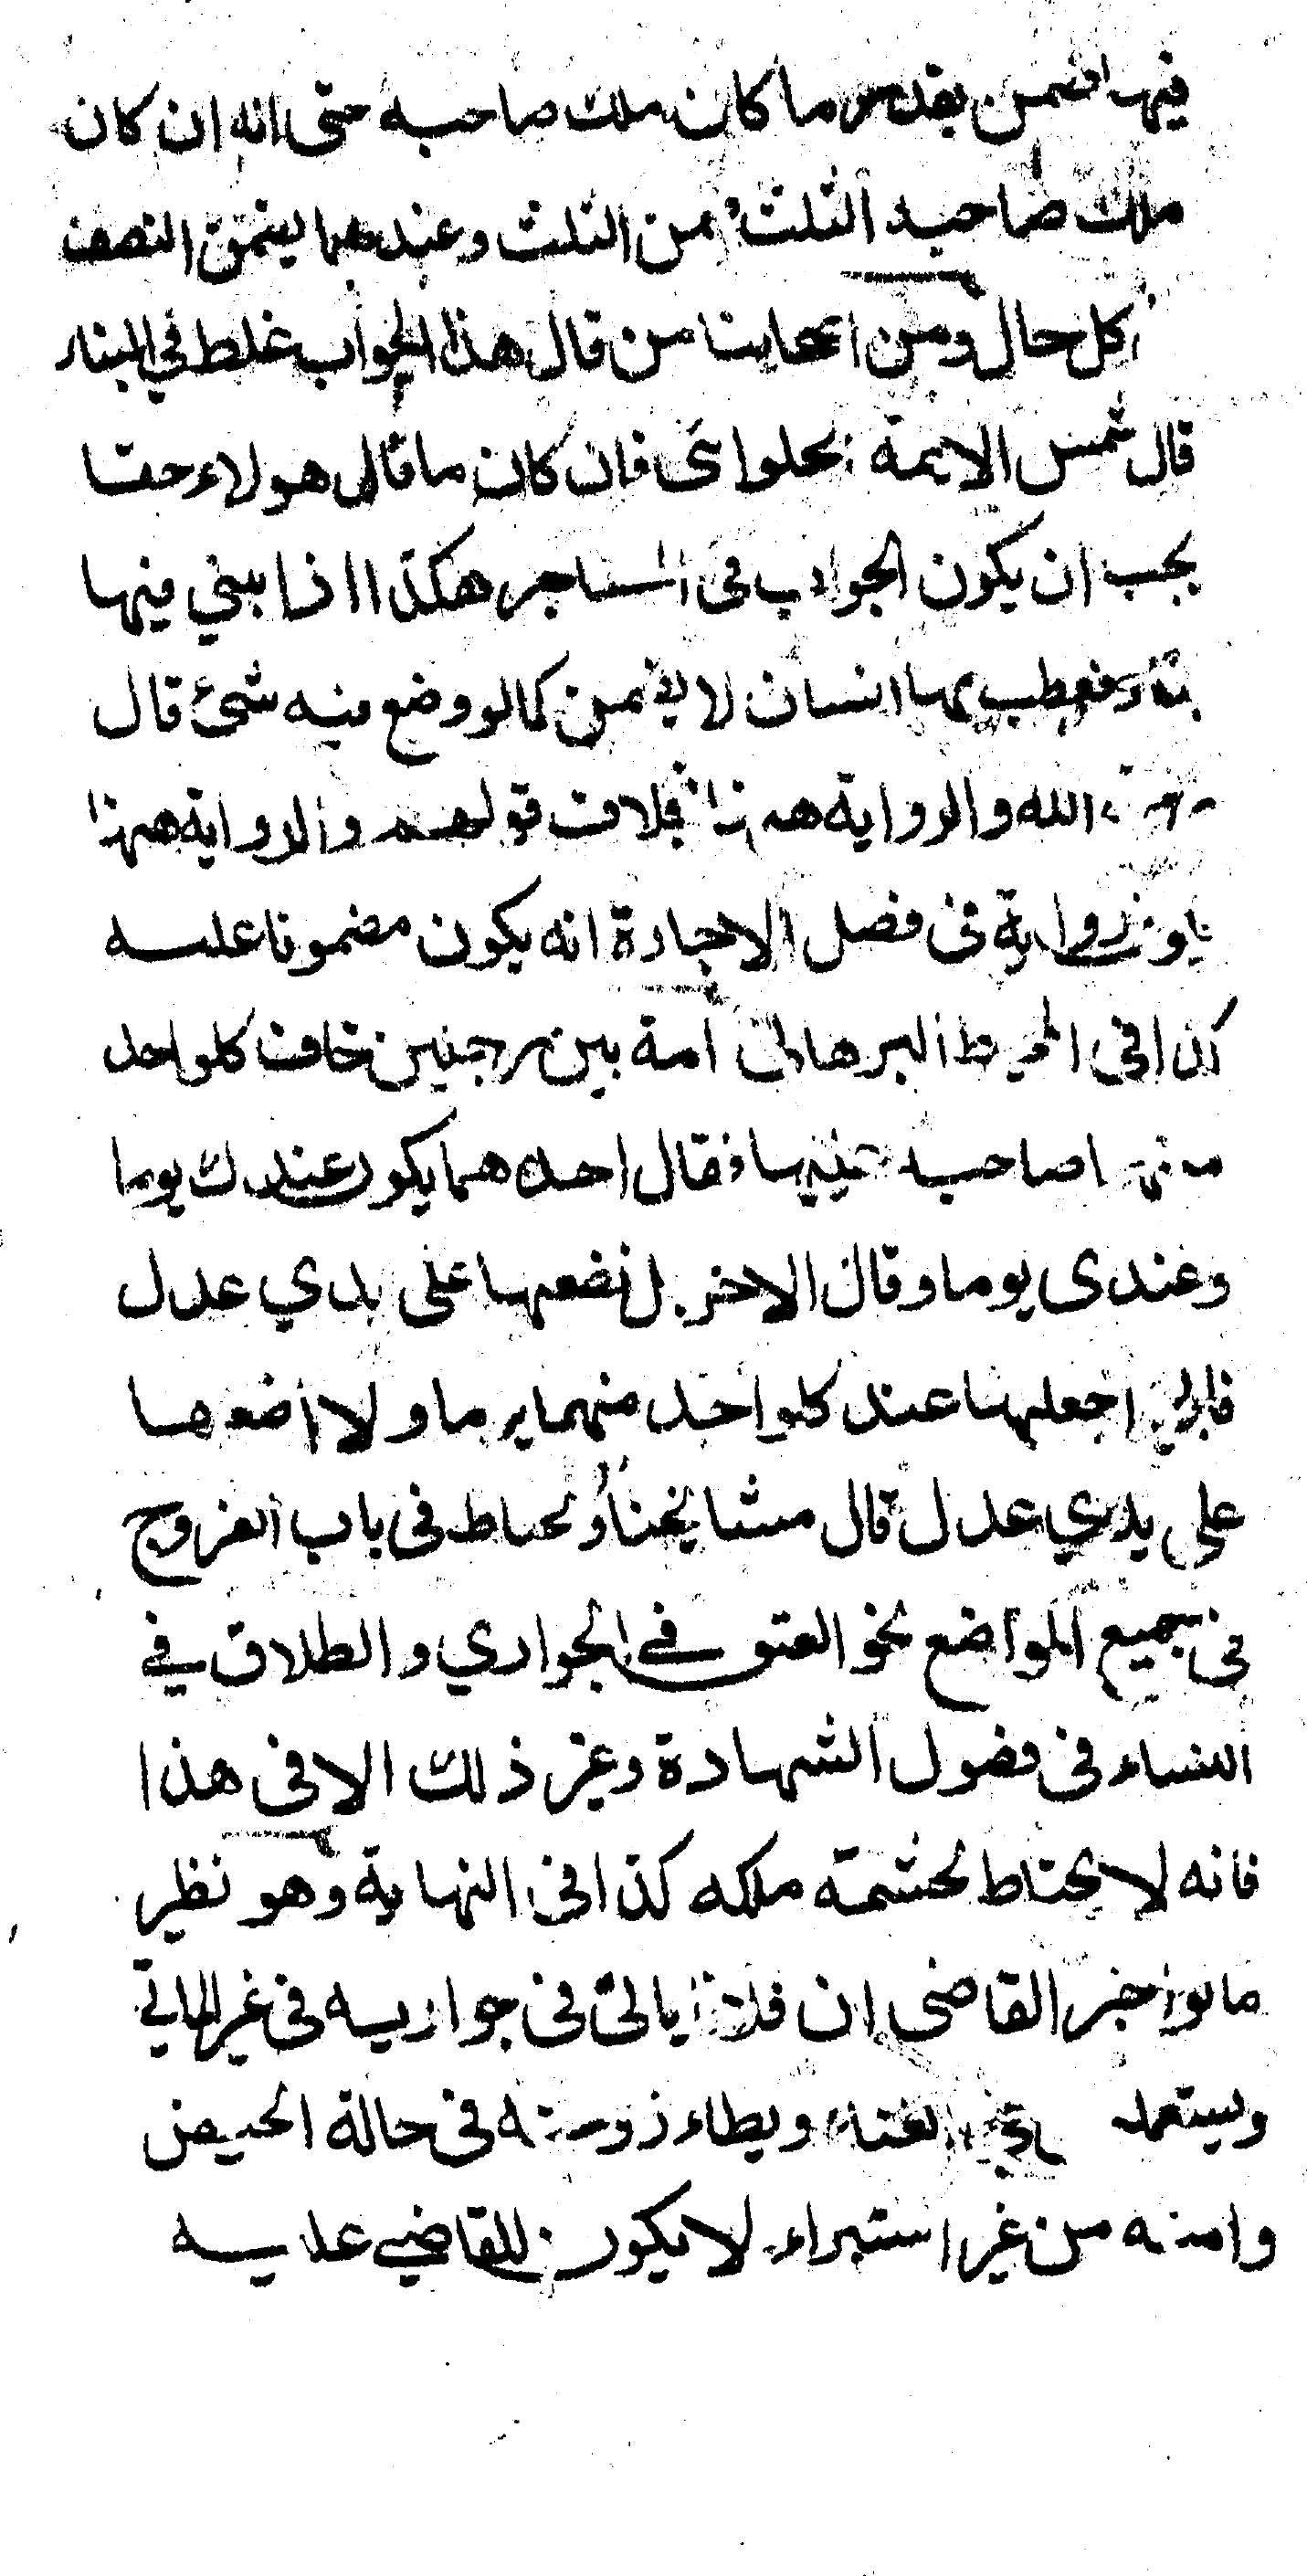 فيها يضمن بقدر ما كان ملك صاحبه حتى انه ان كان
ملك صاحبه الثلث يضمن الثلث وعندهما يضمن النصف
كل حال ومن اصحابنا من قال هذا الجواب غلط في البناء
قال شمس الايمة الحلوائى فان كان ما قال هولاء حقا
يجب ان يكون الجواب فى المستاجر هكذا اذا بنى فيها
بناء فعطب بها انسان لا يضمن كما لو وضع فيه شئ قال
رحمه الله والرواية هذا بخلاف قولهم والرواية ههنا
رواية فى فصل الاجارة انه يكون مضمونا عليه
كذا فى المحيط البرهانى امة بين رجلين خاف كلواحد
منهما صاحبه عليها فقال احدهما يكون عندك يوما
وعندى يوما وقال الاخر بل نضعها على يدي عدل
فانى اجعلها عند كلواحد منهما يوما ولا اضعها
على يدي عدل قال مشايخنا ويحتاط فى باب الفروج
فى جميع المواضع نحو العتق في الجواري والطلاق في
النساء فى فصول الشهادة وغير ذلك الا فى هذا
فانه لا يحتاط لحشمة ملكه كذا فى النهاية وهو نظير
ما لو اخبر القاضى ان فلانا ياتى فى جواريه فى غير الماتي
ويستعمل البغاء ويطاء زوجته فى حالة الحيض
وامته من غير استبراء لا يكون للقاضي عليه